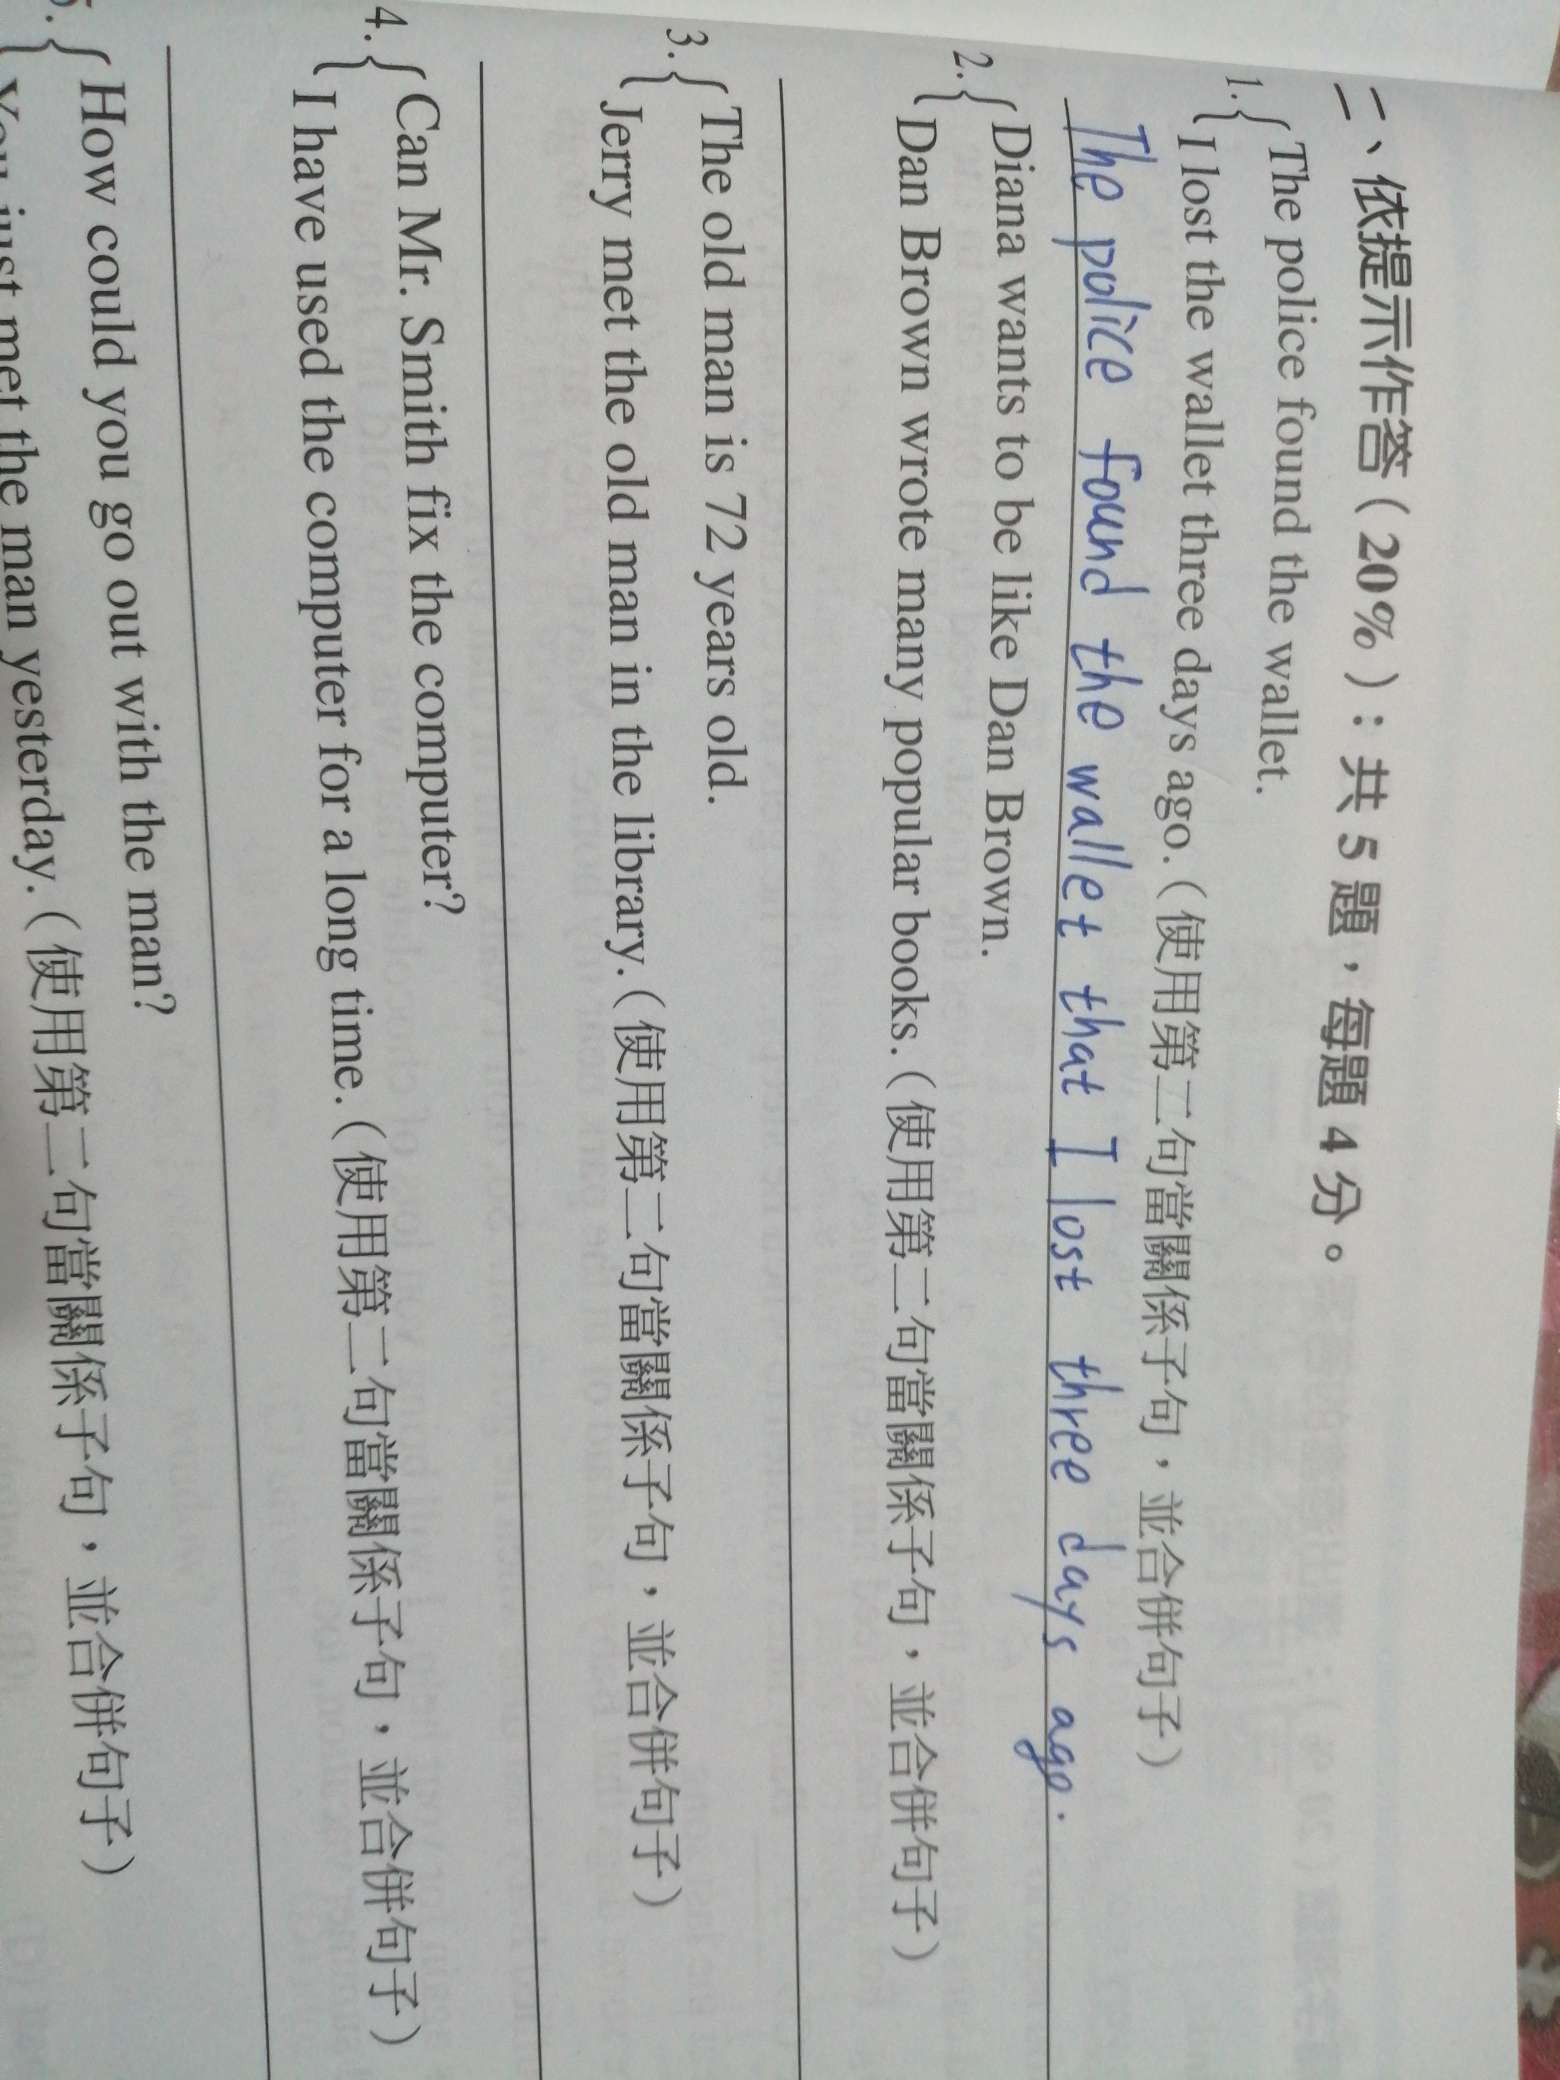 二、依提示作答(20%):共 5 題,每題 4 分。
1. The police found the wallet.
I lost the wallet three days ago.(使用第二句當關係子句,並合併句子)
The police found the wallet that I lost three days ago.
2. Diana wants to be like Dan Brown.
Dan Brown wrote many popular books.(使用第二句當關係子句,並合併句子)
3. The old man is 72 years old.
Jerry met the old man in the library.(使用第二句當關係子句,並合併句子)
4. Can Mr. Smith fix the computer?
I have used the computer for a long time.(使用第二句當關係子句,並合併句子)
5. How could you go out with the man?
You just met the man yesterday.(使用第二句當關係子句,並合併句子)